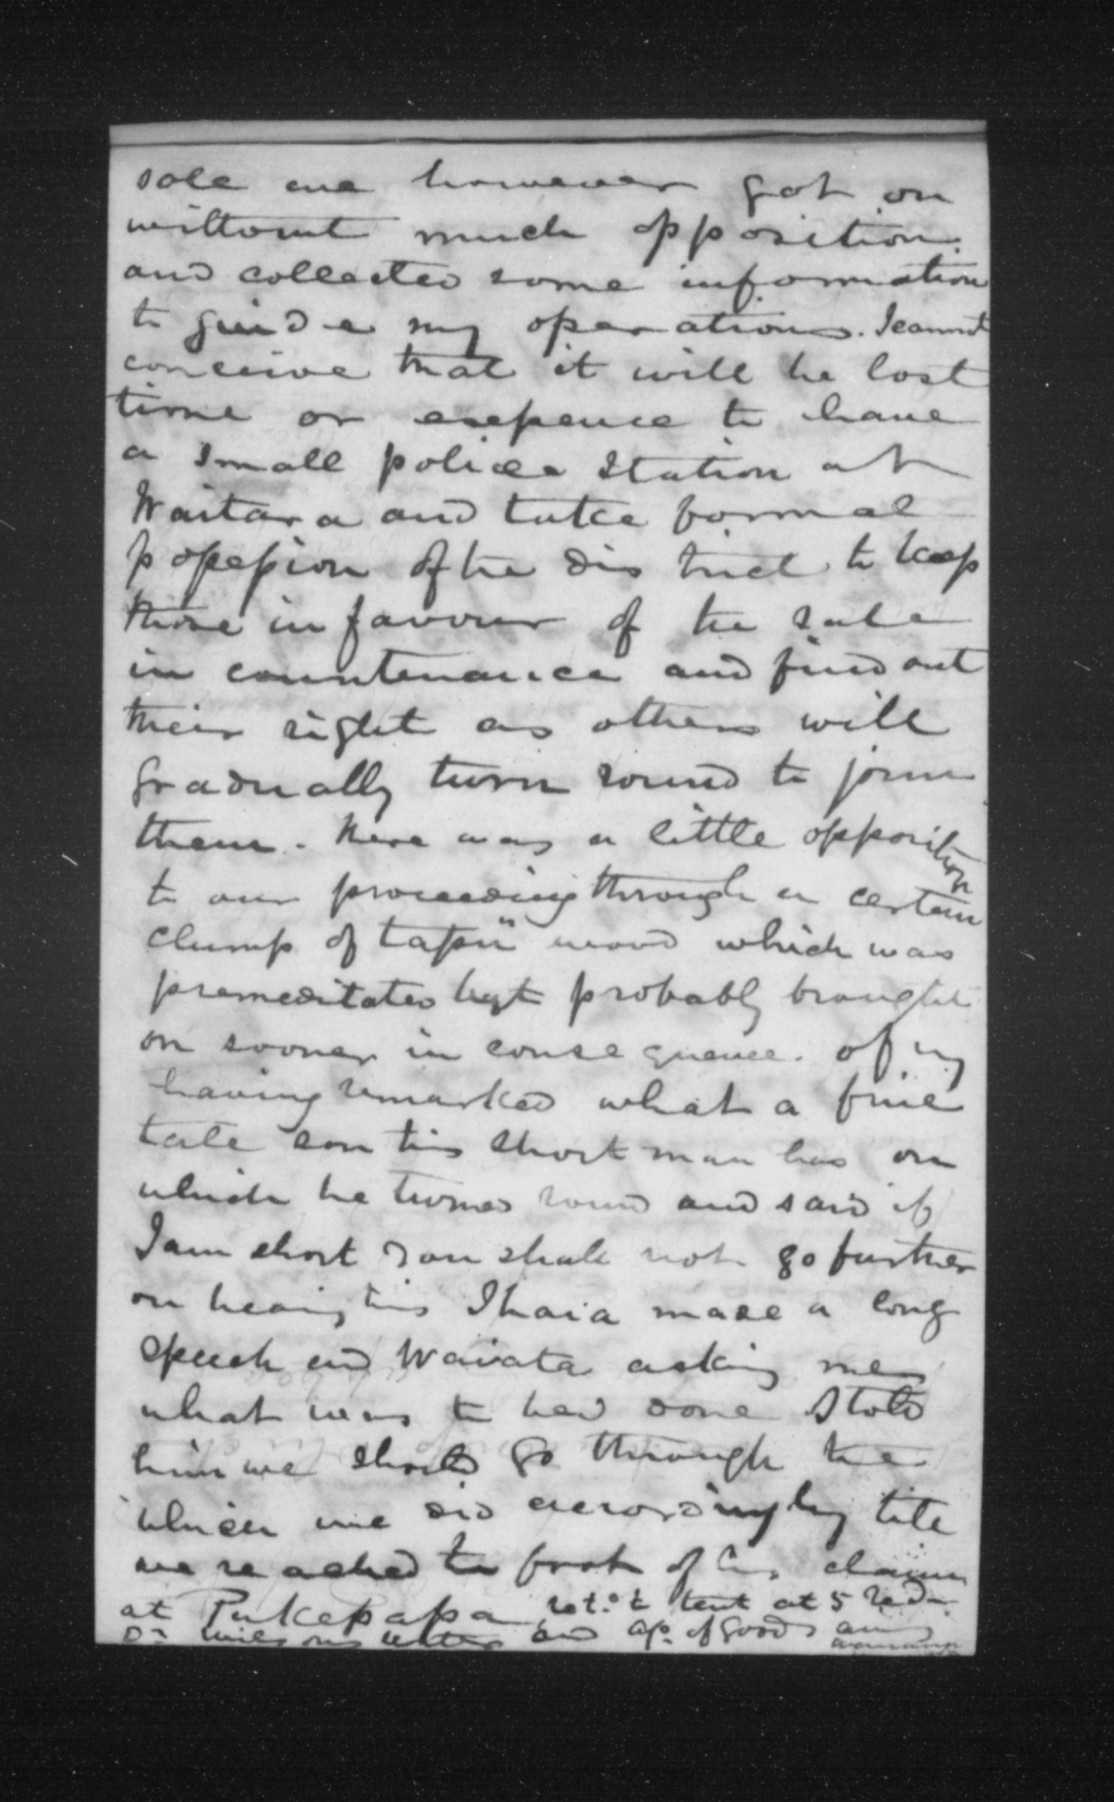 sale we however got on
without much opposition
and collected some information
to guide my operations. I cannot
conceive that it will be lost
time or expence to have
a small police station at
Waitara and take formal
possession of the district to keep
those in favour of the sale
in countenance and find out
their right as others will
gradually turn round to join
them. There was a little opposition
to our proceeding through a certain
clump of "tapu" wood which was
premeditated but probably brought
on sooner in consequence. of my
having remarked what a fine
tall son this short man has on
which he turned round and said if
I am short you shall not go further
on hearing this Ihaia made a long
speech and Waiata asking me
what was to be done I told
him we should go through the
which we did accordingly till
we reached the foot of his claim
at Pukepapa ret.d to tent at 5 recd.
Dr Wilsons letter and of goods